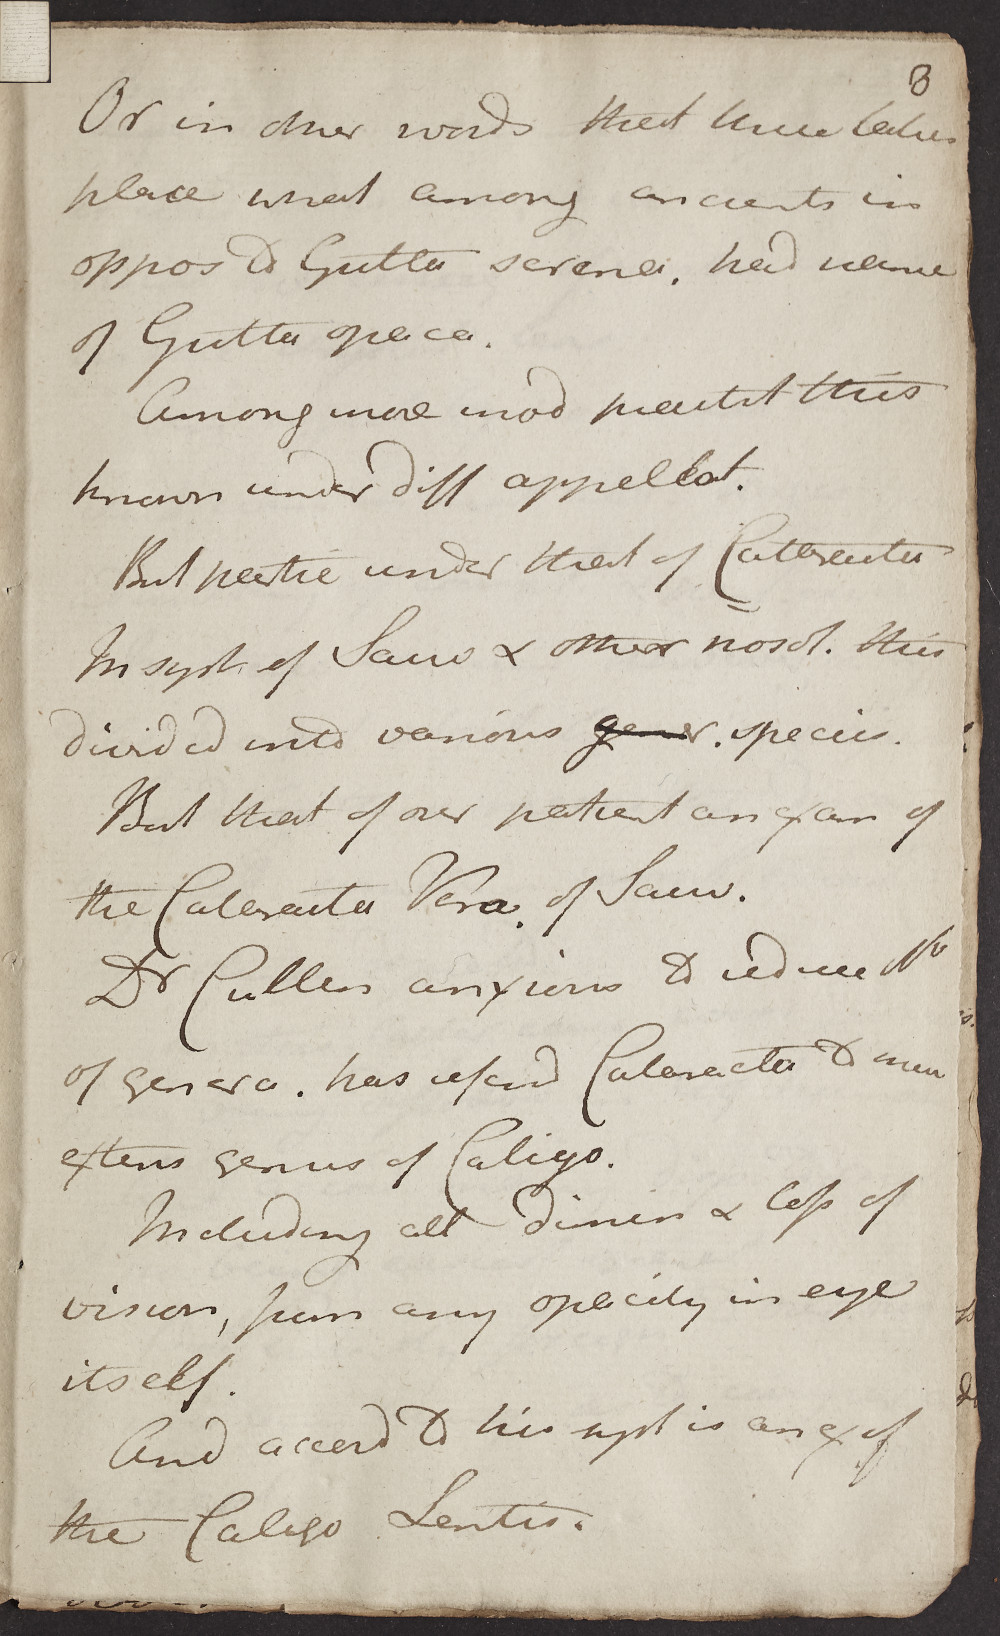 8
Or in other words that there takes
place what among ancients in
oppos to Gutta serena. had name
of Gutta opaca.
Among more mod practit this
known under diff appellat.
But partic under that of Cataracta
In syst. of Sauv & other nosol. this
divided into various gener. species.
But that of our patient an exam of
the Cataracta Vera. of Sauv.
Dr Cullen anxious to reduce No
of genera. has referd Cataracta to more
extens genus of Caligo.
Including all dimin & loss of
vision, from any opacity in eye
itself.
And accord to his syst is an ex of
the Caligo Lentis.